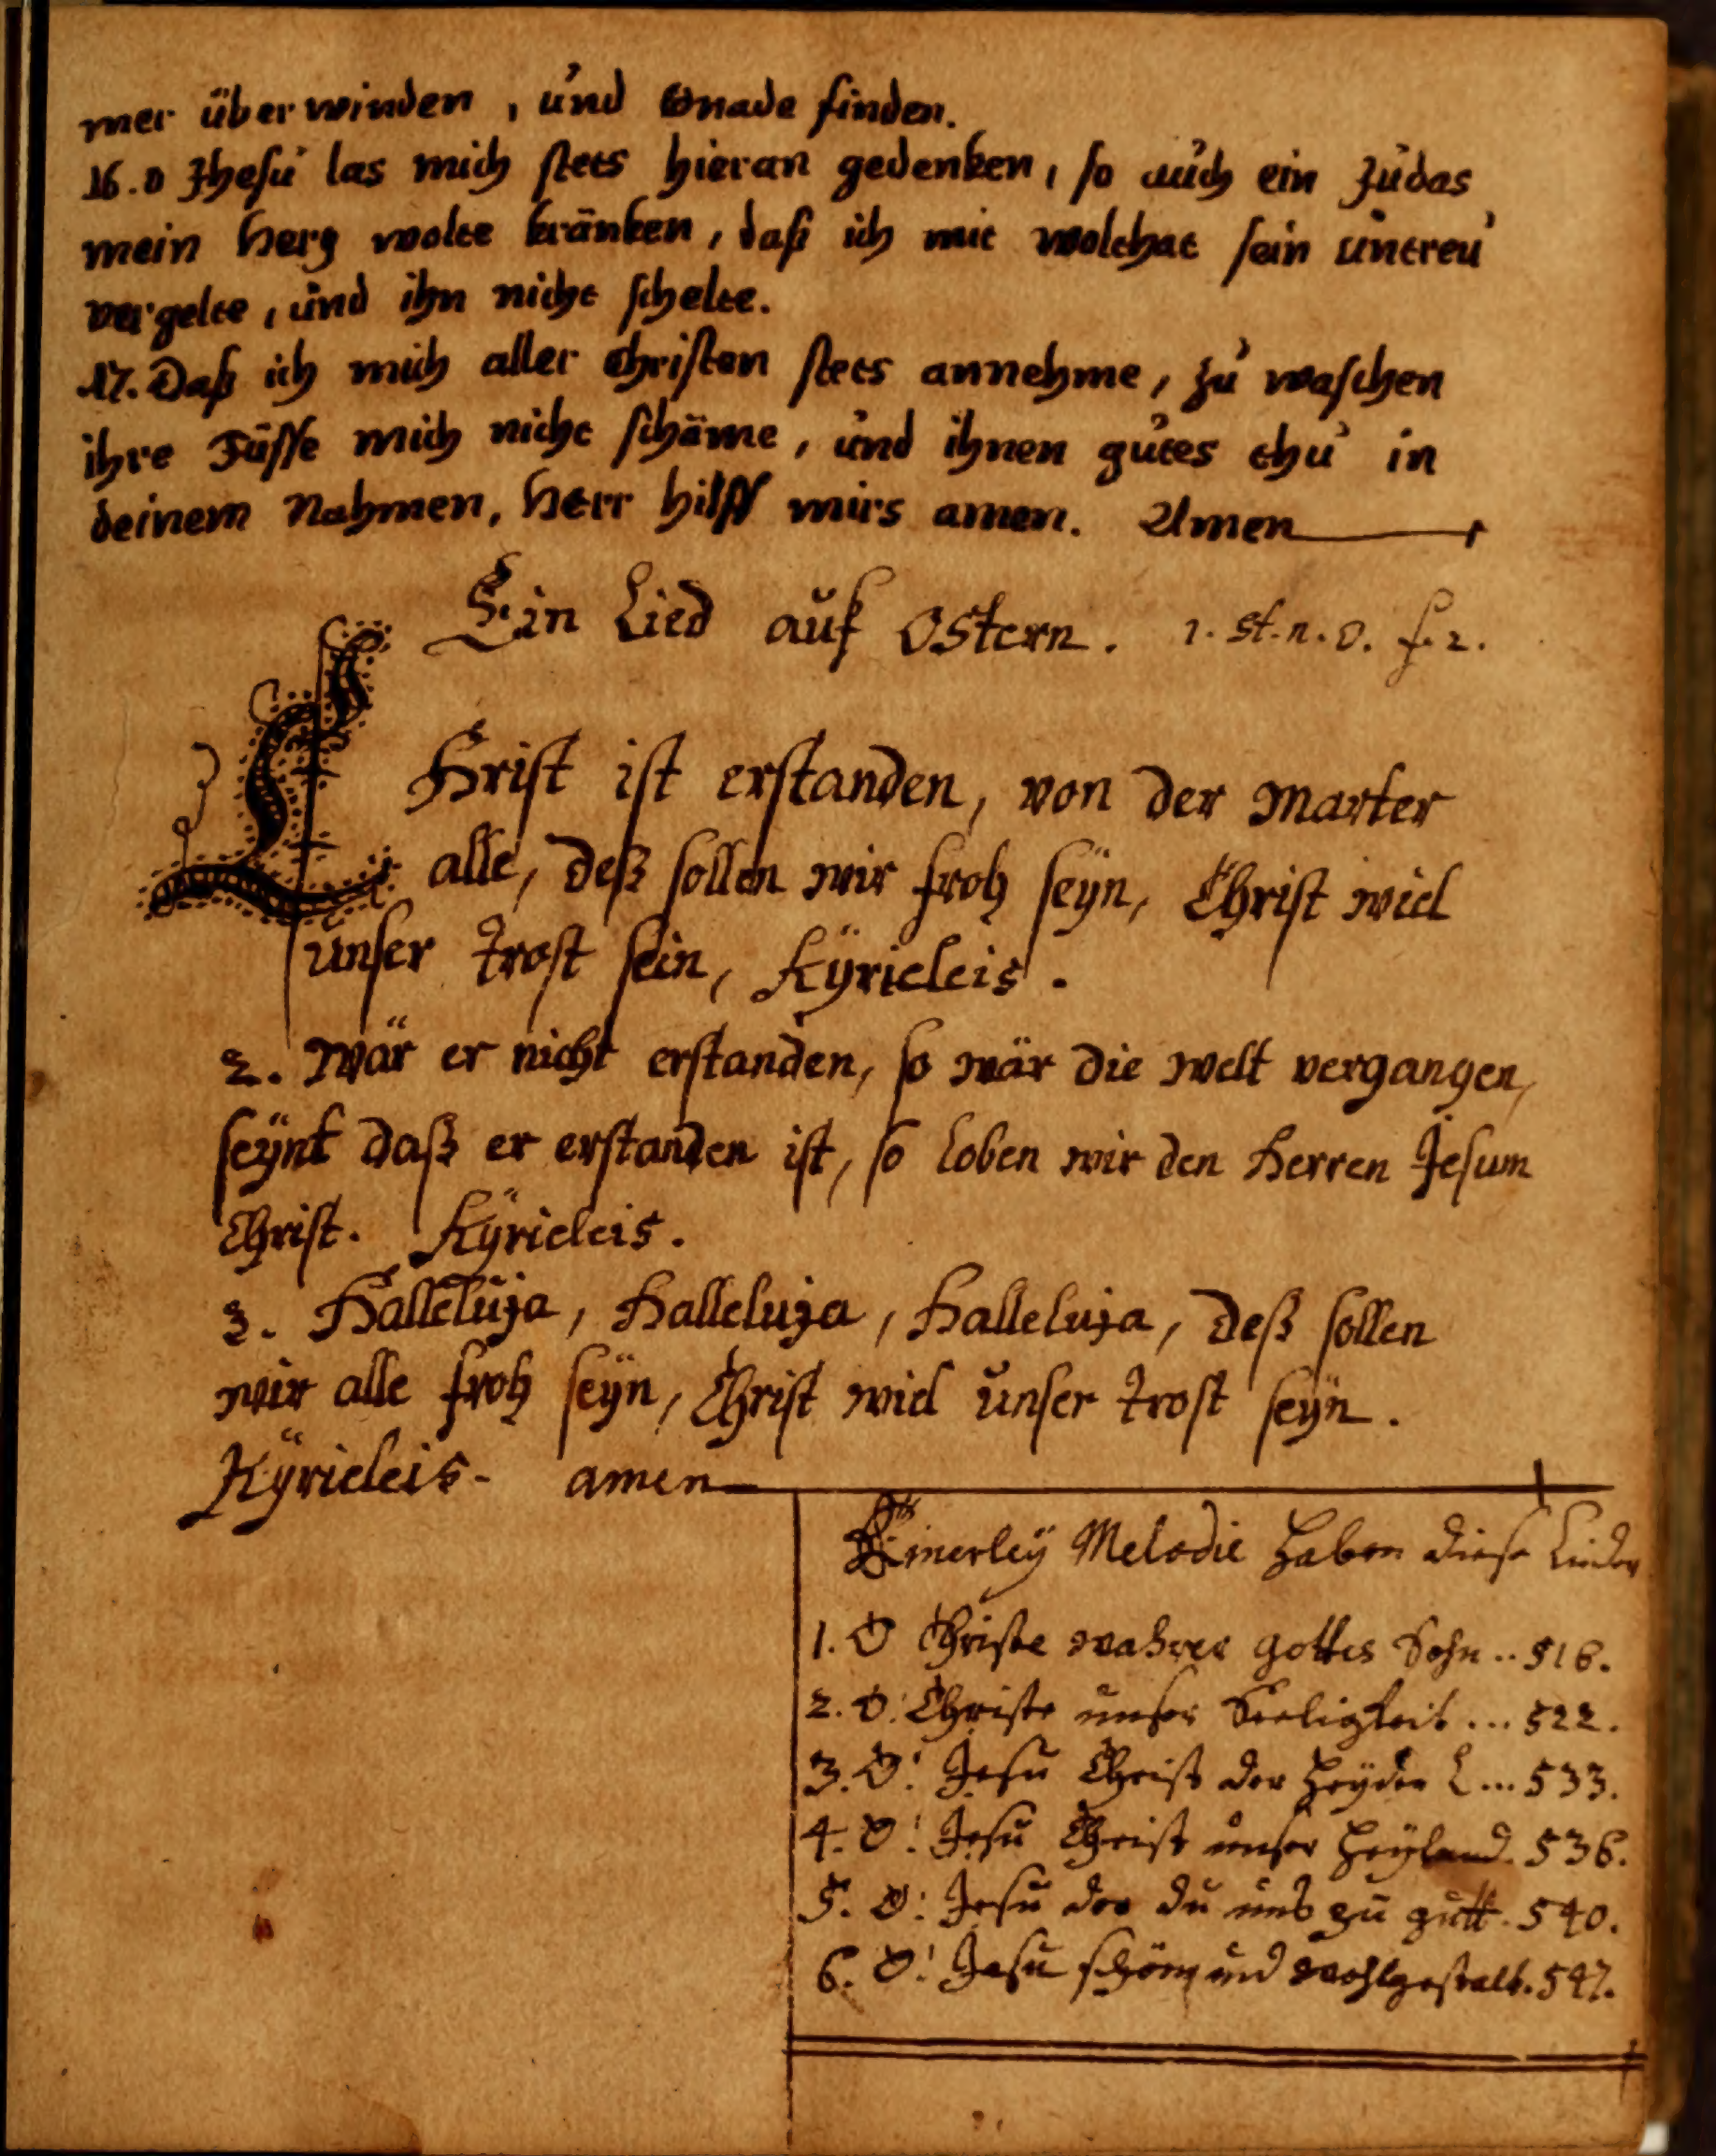 mer überwinden, und Gnade finden.
16. O Jhesu las mich stets hieran gedenken, so auch ein Judas
mein herz wolte kränken, daß ich mit wolthat sein untreu
vergelte, und ihn nicht schelte.
17. Daß ich mich aller Christen stets annehme, zu waschen
ihre Füsse mich nicht schäme, und ihnen gutes thu in
deinem Nahmen, herr hilff mirs amen. Amen
Ein Lied auf Ostern. 1. st. n. O. f. 2.
CHrist ist erstanden, von der marter
alle, deß sollen wir froh seÿn, Christ wiel
unser trost sein, Kÿrieleis.
2. Wär er nicht erstanden, so wär die welt vergangen,
seÿnt daß er erstanden ist, so loben wir den Herren Jesum
Christ. Kÿrieleis.
3. Halleluja, Halleluja, Halleluja, deß sollen
wir alle froh seÿn, Christ wiel unser trost seÿn.
Kÿrieleis. amen
Einerleÿ Melodie haben diese Lieder
1. O Christe wahrer gottes Sohn .. 516.
2. O: Christe unser Seeligkeit ... 522.
3. O! Jesu Christ der Heÿden L ... 533.
4. O! Jesu Christ unser Heÿland. 536.
5. O: Jesu der du uns zu gutt. 540.
6. O! Jesu schön und wohlgestalt. 547.